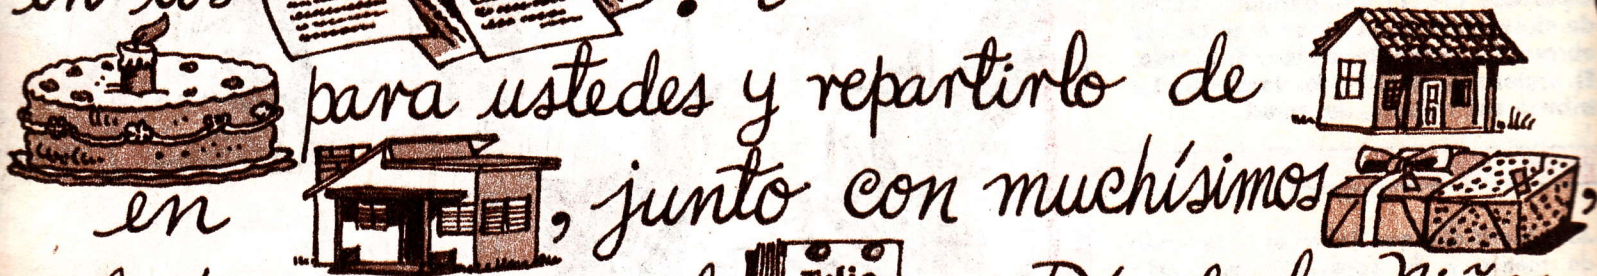 en los
para ustedes y repartirlo de
en , junto con muchísimos ,
Julio